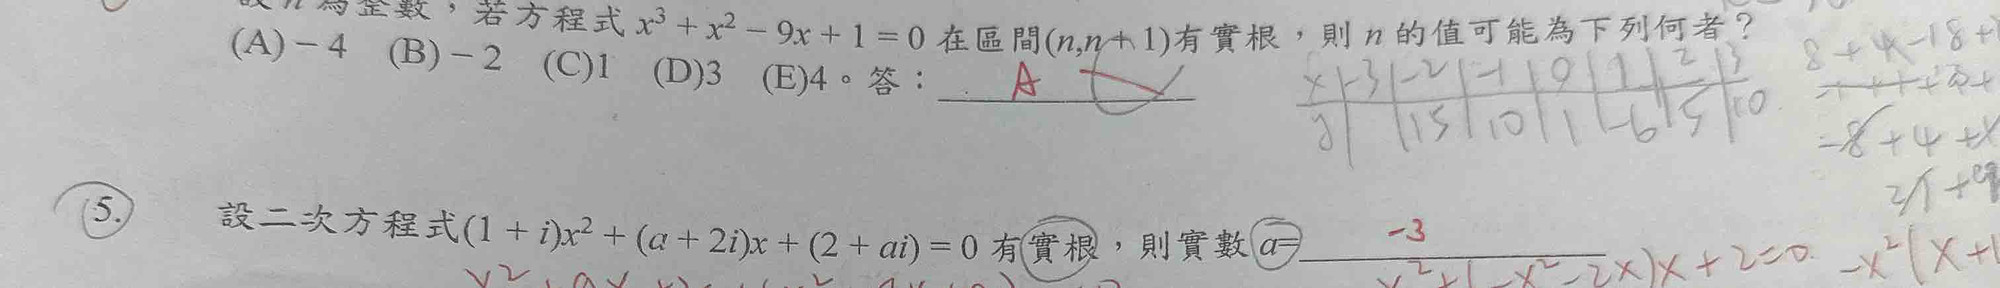 n 為整數，若方程式 x³ + x² − 9x + 1 = 0 在區間(n,n + 1)有實根，則 n 的值可能為下列何者？
(A) − 4 (B) − 2 (C)1 (D)3 (E)4。答： A
x -3 -2 -1 0 1 2 3
y 15 10 1 -6 5 10
8 + 4 - 18 +
-8 + 4 +
5. 設二次方程式(1 + i)x² + (a + 2i)x + (2 + ai) = 0 有實根，則實數 a= -3
x² + (-x² - 2x)x + 2 = 0 -x²(x+1